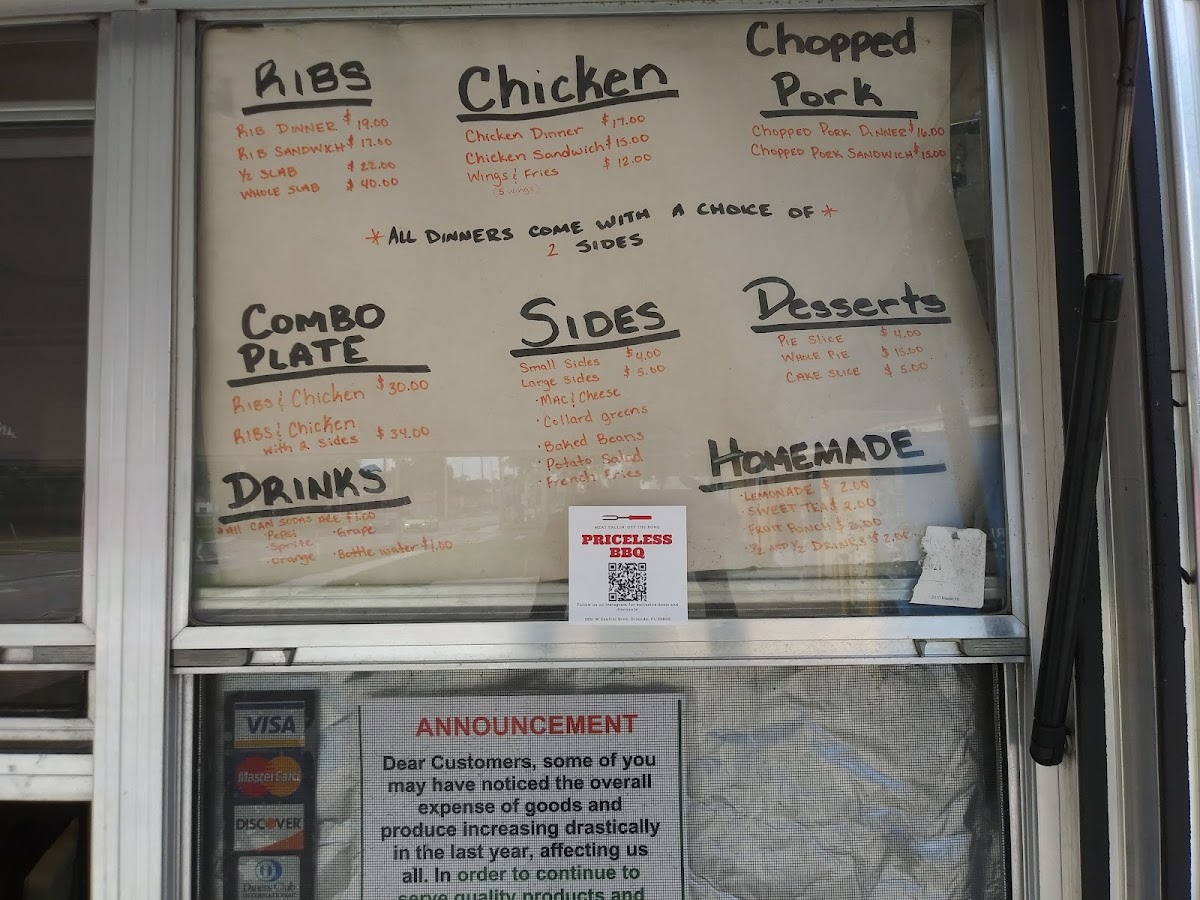 RIBS
RIB DINNER $19.00
RIB SANDWICH $17.00
1/2 SLAB $22.00
WHOLE SLAB $40.00
Chicken
Chicken Dinner $17.00
Chicken Sandwich $15.00
Wings & Fries $12.00
(5 wings)
Chopped
Pork
CHOPPED PORK DINNER $16.00
CHOPPED PORK SANDWICH $15.00
*ALL DINNERS COME WITH A CHOICE OF*
2 SIDES
COMBO
PLATE
RIBS & Chicken $30.00
RIBS & Chicken
with 2 sides $34.00
SIDES
Small Sides $4.00
Large Sides $5.00
·Mac & Cheese
·Collard greens
·Baked Beans
·Potato Salad
·French Fries
Desserts
PIE SLICE $4.00
WHOLE PIE $15.00
CAKE SLICE $5.00
DRINKS
*All CAN SODAS ARE $1.00
·Pepsi ·Grape
·Sprite
·Orange ·Bottle water $1.00
HOMEMADE
·LEMONADE $2.00
·SWEET TEA $2.00
·FRUIT PUNCH $2.00
·1/2 AND 1/2 DRINKS $2.00
MEAT FALLIN' OFF THE BONE
PRICELESS
BBQ
Follow us on Instagram for exclusive deals and
discounts
W Central Blvd, Orlando, FL
VISA
MasterCard
DISCOVER
Diners Club
INTERNATIONAL
ANNOUNCEMENT
Dear Customers, some of you
may have noticed the overall
expense of goods and
produce increasing drastically
in the last year, affecting us
all. In order to continue to
serve quality products and